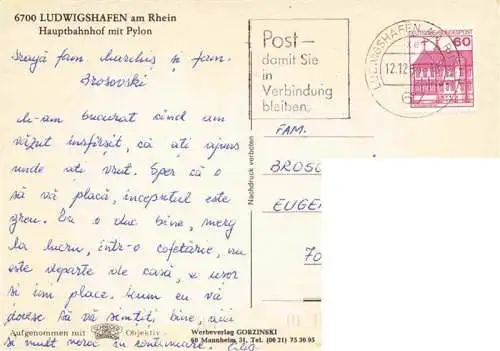 6700 LUDWIGSHAFEN am Rhein
Hauptbahnhof mit Pylon
Post –
damit Sie
in
Verbindung
bleiben.
LUDWIGSHAFEN
12.12
DEUTSCHE BUNDESPOST
60
fam. și fam.
Brosovski
M-am bucurat cînd am
văzut însfîrșit, că ați ajuns
unde ați vrut. Sper că o
să vă placă, începutul este
greu. Eu o duc bine, merg
la lucru, într-o cofetărie, nu
este departe de casă, e ușor
și îmi place. Acum eu vă
doresc să vă simțiți bine, aici
și mult noroc în continuare.
Nachdruck verboten
FAM.
BROSO
EUGEN
70
Aufgenommen mit Objektiv
Werbeverlag GORZINSKI
68 Mannheim 31, Tel. (06 21) 75 30 95